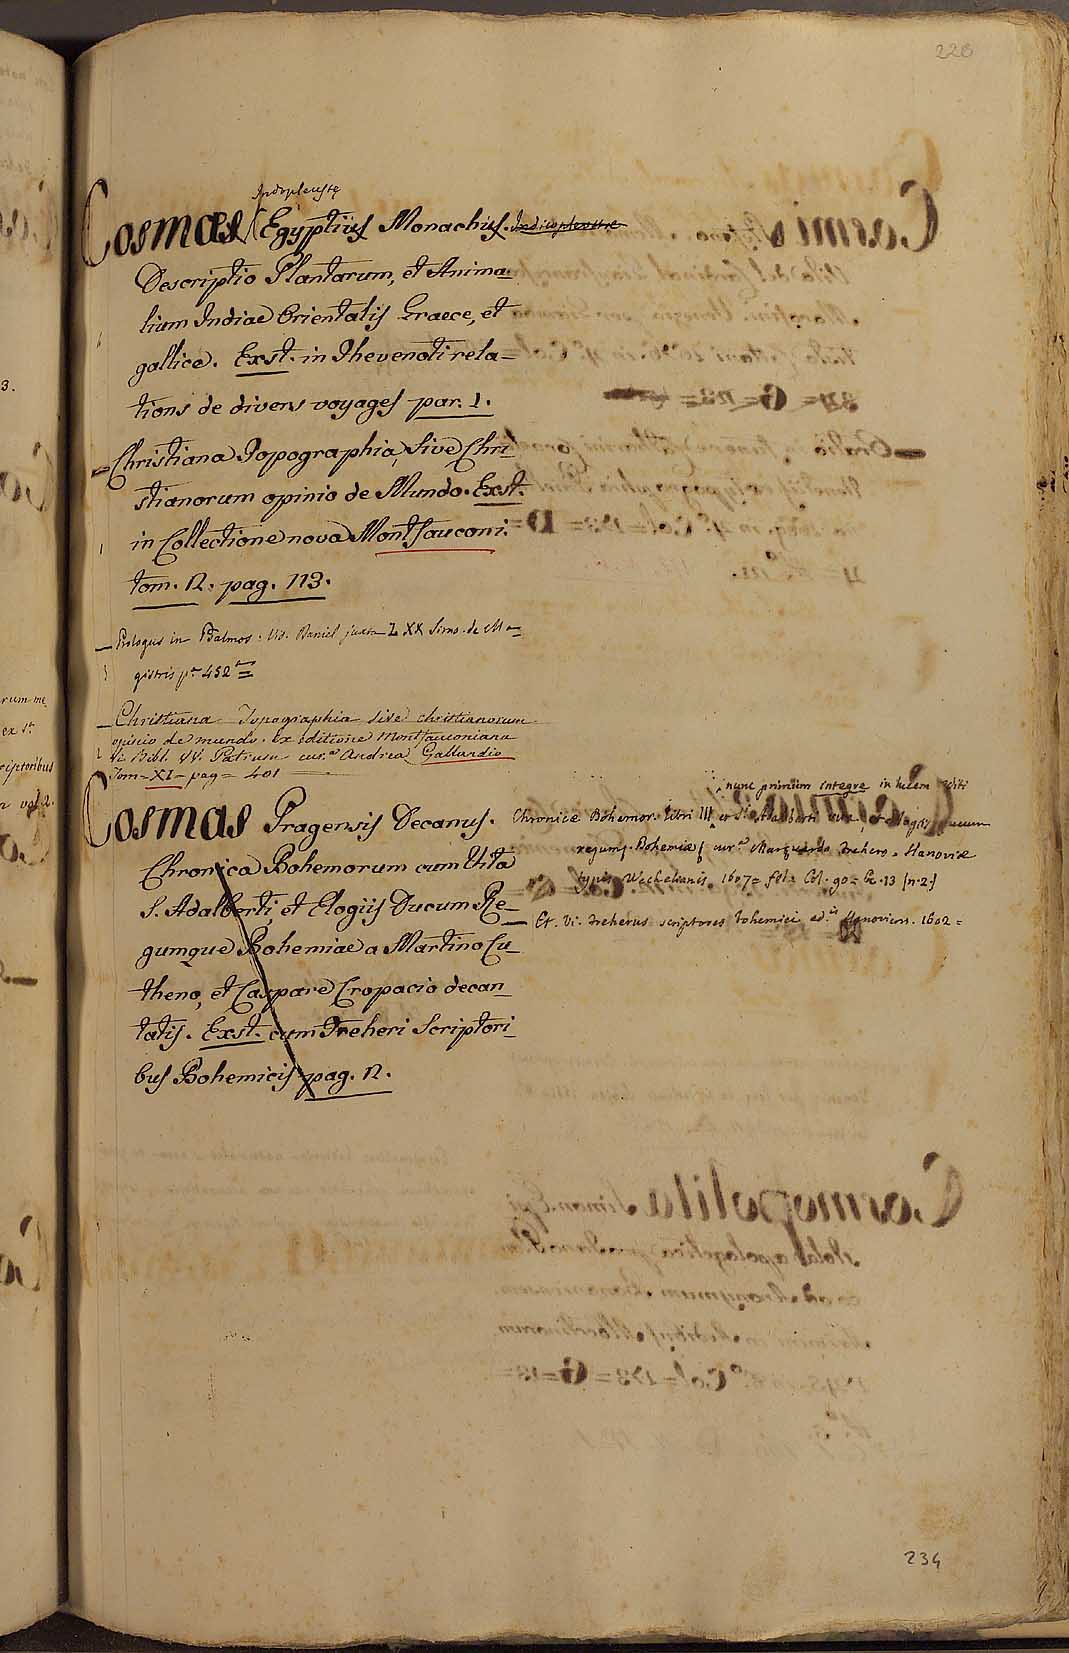 228
Indopleustę
Cosmas Egyptiis Monachus. Indicopleustæ
Descriptio Plantarum, et Anima-
lium Indiae Orientalis Graece, et
gallice. Exst. in Thevenoti rela-
tions de divers voyages par. 1.
- Christiana Topographia, sive Chri-
stianorum opinio de Mundo. Exst.
in Collectione nova Montfauconi.
tom. 2. pag. 113.
- Prologus in Psalmos. Vid. Daniel juxta LXX Simo. de Ma-
gistris pa 452
- Christiana Topographia sive christianorum
opinio de mundo. ex editione Montfauconiana
Vi. Bibl. VV. Patrum cura Andrea Gallandio
Tom = XI = pag = 401
Cosmas Pragensis Decanus.
Chronica Bohemorum cum Vita
S. Adalberti, et Elogiis Ducum Re-
gumque Bohemiae a Martino Cu-
theno, et Caspare Cropacio decan-
tatis. Exst. cum Freheri Scriptori-
bus Bohemicis pag. 2.
nunc primum integre in lucem editi
Chronicæ Bohemor. Libri III et Sti Adalberti vita, et elogia ducum
regumq. Bohemiæ cura Marquardo Frehero. Hanoviæ
typis Wechelianis 1607 = fol = Col. 90 = Æ. 13 [n. 2.]
- Et. Vi. Freherus scriptores bohemici ed.is Hanoviens. 1602 =
234